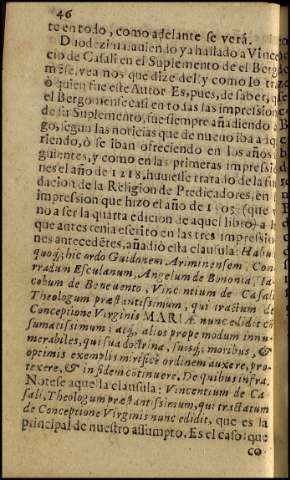 46
te en todo, como adelante se verá.
Diodezimaquien lo ya hallado a Vincé
cio de Casali en el Suplemento de el Berg
mése, vea nos que dize del, y como lo tra
ò quien fue este Autor Es, pues, de saber, q
el Bergomense casi en todas las impressione
de su Suplemento, fue siempre añadiendo
go, segun las noticias que de nuevo iba ad
riendo, ò se iban ofreciendo en los años
guientes, y como en las primeras impressio
nes el año de 1218, huuiesse tratado de la fu
dacion de la Religion de Predicadores, en
impression que hizo el año de 1503 (que
no a ser la quarta edicion de aquel libro) a
que antes tenia escrito en las tres impressio
nes antecedétes, añadiò esta clausula: Habui
quoq; hic ordo Guidonem Ariminensem, Con
radum Esculanum, Angelum de Bononia, Ia
cobum de Benevento, Vincentium de Casali
Theologum præstantissimum, qui tractum de
Conceptione Virginis MARIÆ nunc edidit
sumatissimum; atq; alios prope modum innu
merabiles, qui sua doctrina, suisq; moribus, &
optimis exemplis mirificè ordinem auxere, pro
texere, & in fidem cotinuere. De quibus infra.
Notese aquella clausula: Vincentium de Ca
sali, Theologum præstantissimum, qui tractatum
de Conceptione Virginis nunc edidit, que es la
principal de nuestro assumpto. Es el caso: que
co